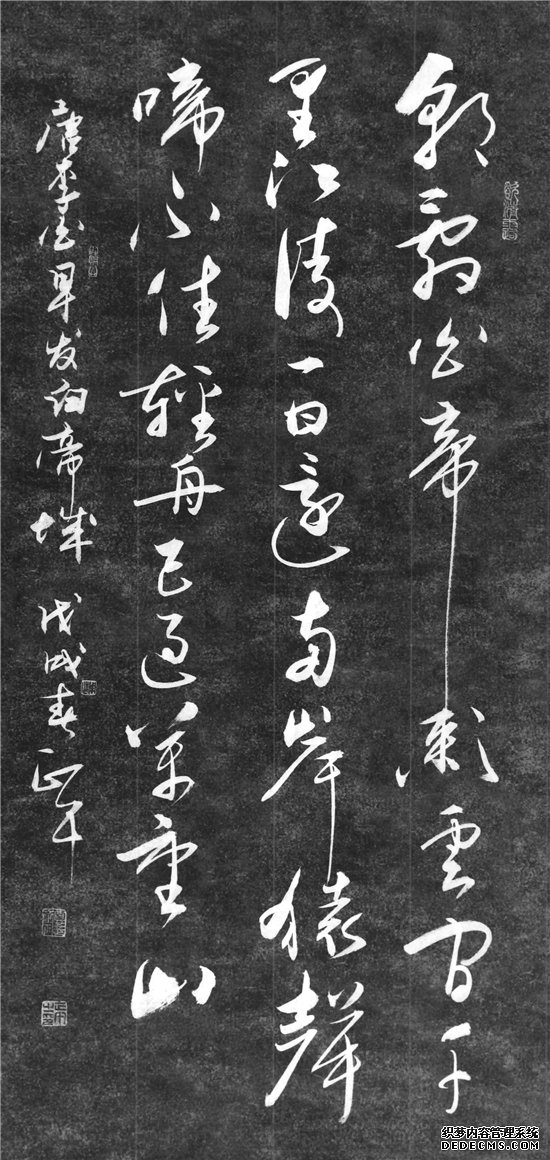 朝辭白帝彩雲間千
里江陵一日還兩岸猿聲
啼不住輕舟已過萬重山
唐李白早发白帝城 戊戌春
织梦内容管理系统
DEDECMS.COM